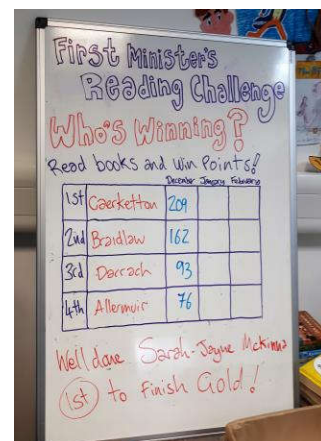 First Minister's
Reading Challenge
Who's Winning?
Read books and Win Points!
December January February
1st Caerketton 209
2nd Braidlaw 162
3rd Darrach 93
4th Allermuir 76
Well done Sarah-Jayne
1st to finish Gold!